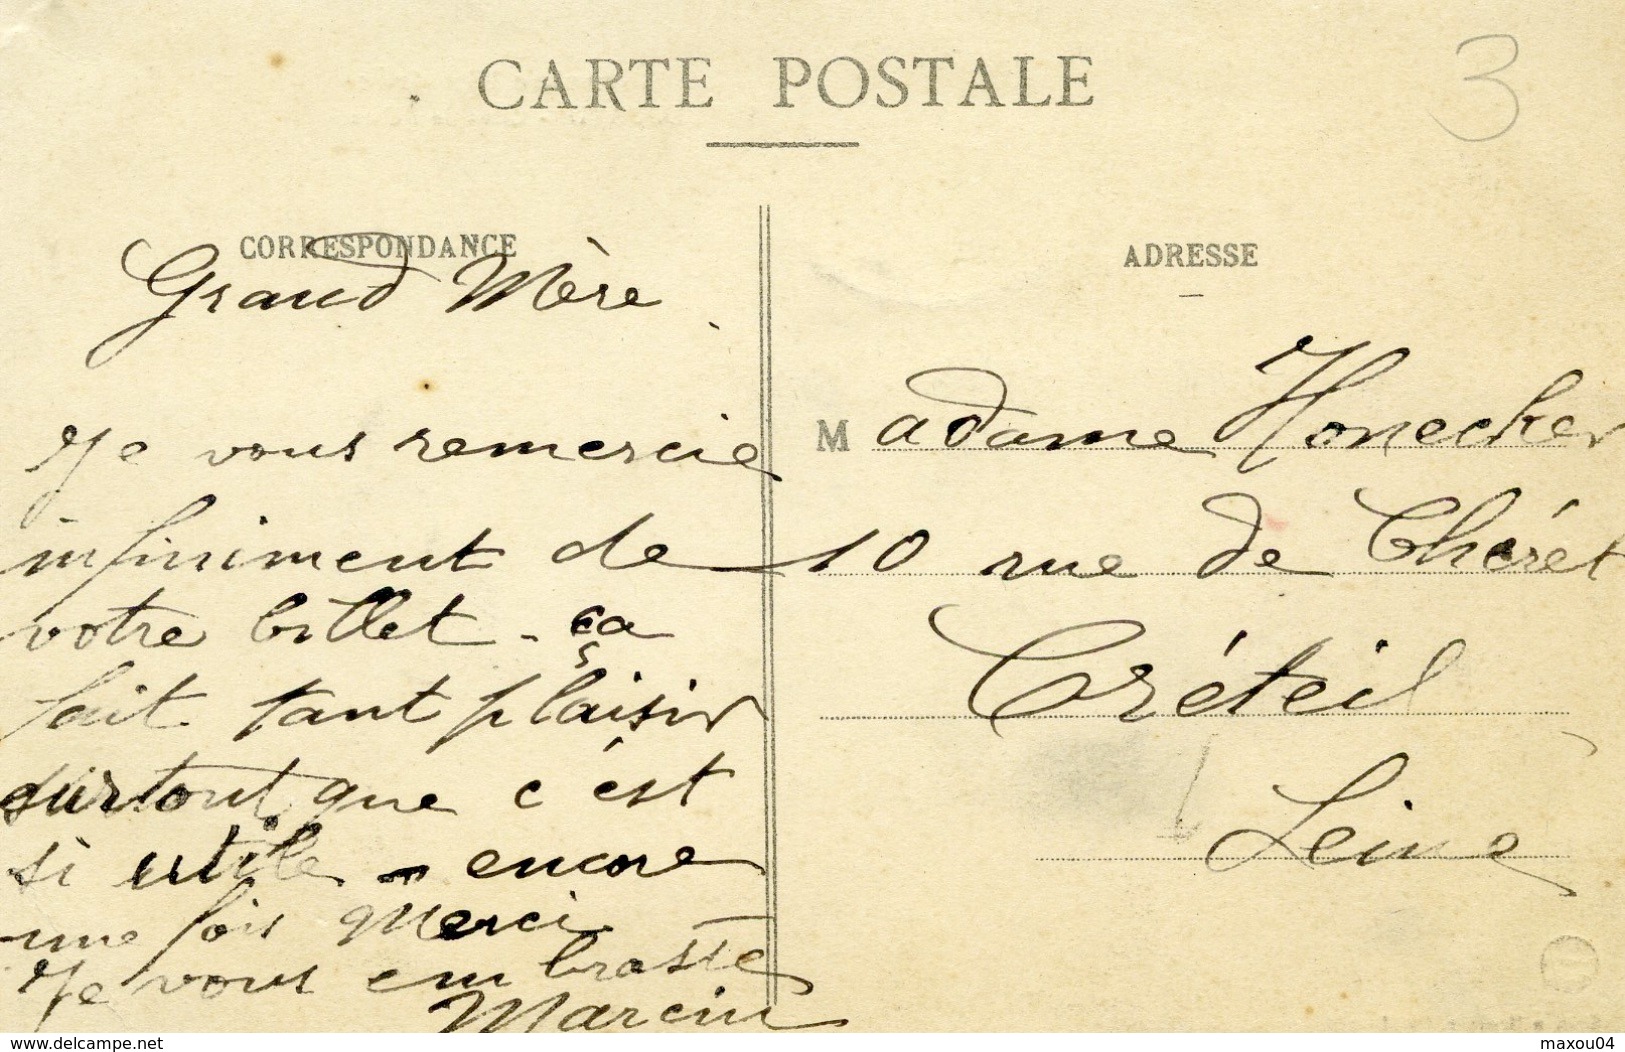 CARTE POSTALE
3
CORRESPONDANCE
Grand Mère
Je vous remercie
infiniment de
votre billet - ça
fait tant plaisir
surtout que c'est
si utile - encore
une fois merci
Je vous embrasse
ADRESSE
Madame Honecker
10 rue de Chéret
Créteil
Seine
www.delcampe.net
maxou04